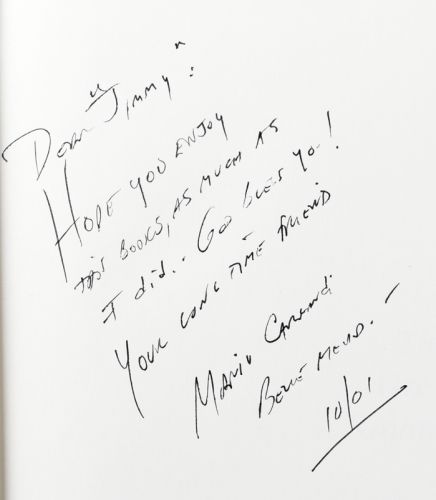 Dear "Jimmy":
Hope you enjoy
this books, as much as
I did.. God bless yo-!
Your long time friend
Mario
10/01